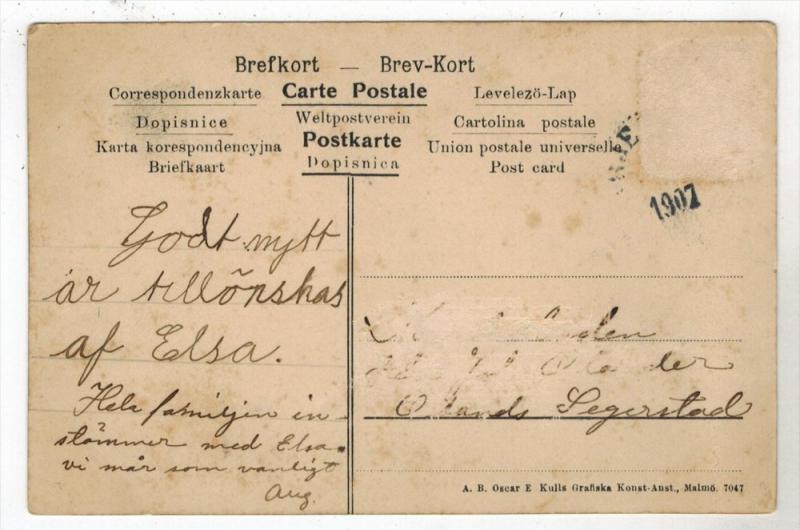 Brefkort — Brev-Kort
Correspondenzkarte Carte Postale Levelező-Lap
Dopisnice Weltpostverein Cartolina postale
Karta korespondencyjna Postkarte Union postale universelle
Briefkaart Dopisnica Post card
1907
Godt nytt
år tillönskas
af Elsa.
Hela familjen in
stämmer med Elsa.
vi mår som vanligt
Aug.
Ölands Segerstad
A. B. Oscar E Kulls Grafiska Konst-Anst., Malmö. 7047